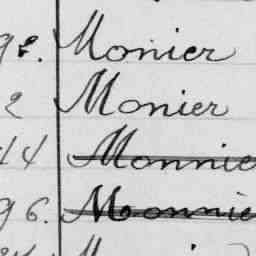 92. Monier
2 Monier
44 Monnie
96. Monnie